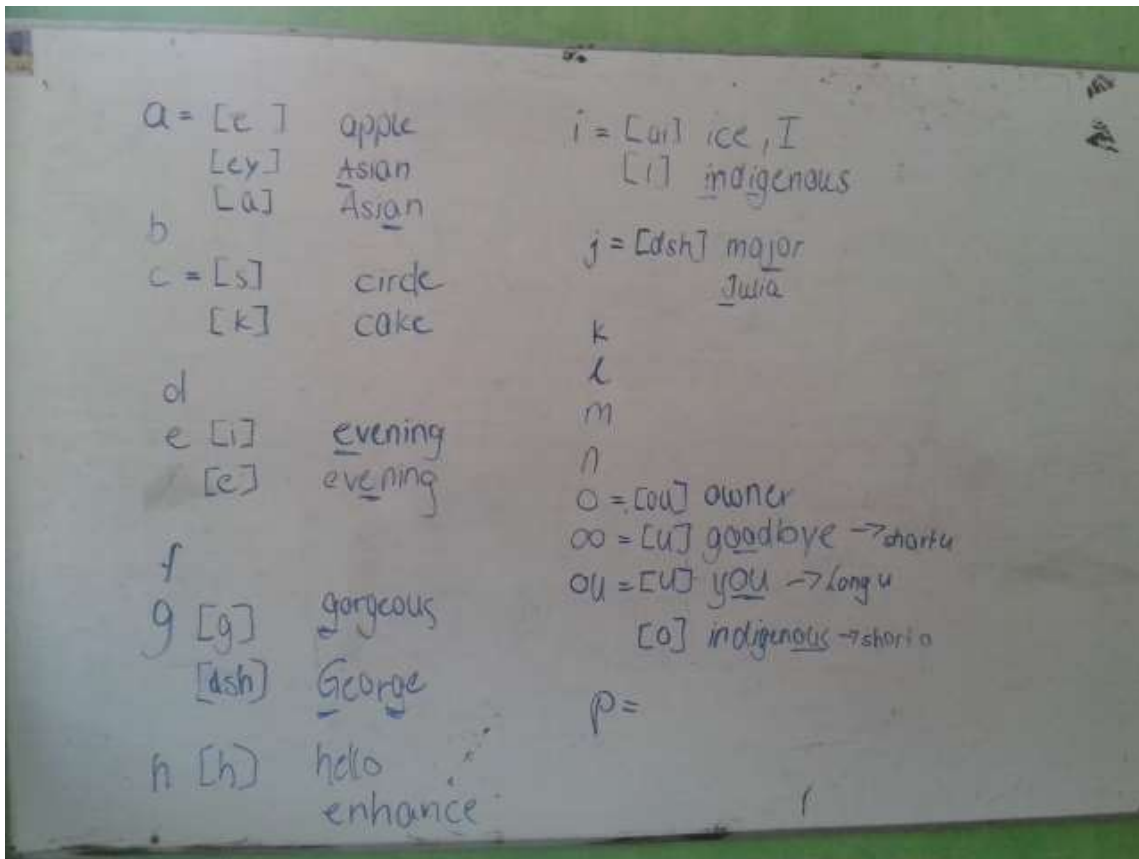 a = [e ] apple
[ey] Asian
[a] Asian
b
c = [s] circle
[k] cake
d
e [i] evening
[e] evening
f
g [g] gorgeous
[dsh] George
h [h] hello
enhance
i = [ai] ice, I
[i] indigenous
j = [dsh] major
Julia
k
l
m
n
o = [ou] owner
oo = [u] goodbye → short u
ou = [u] you → long u
[o] indigenous → short o
p =